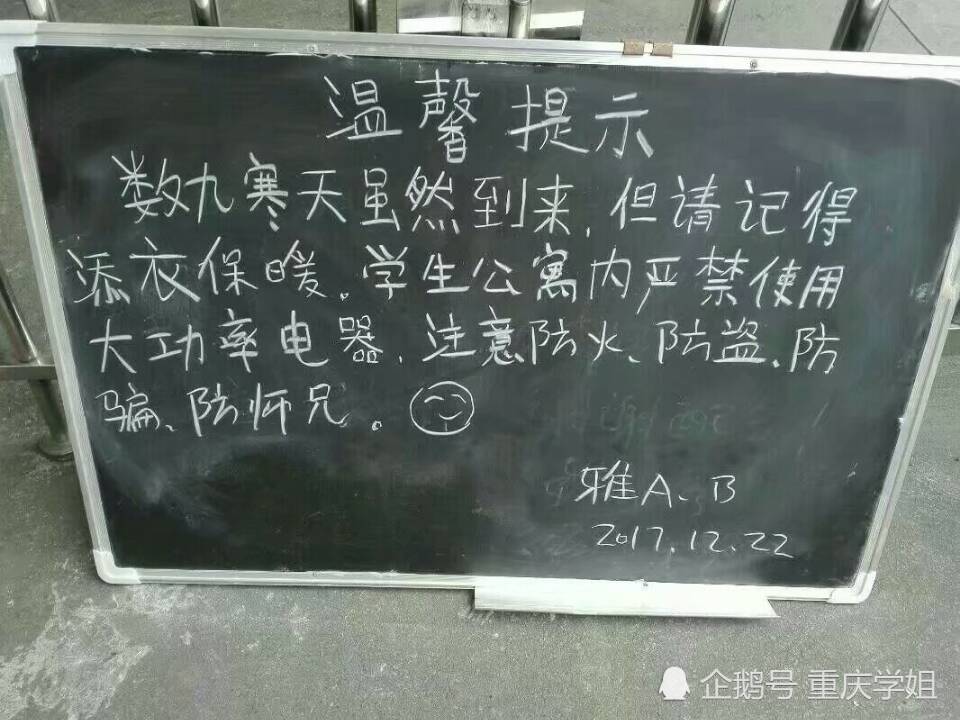 温馨提示
数九寒天虽然到来,但请记得
添衣保暖。学生公寓内严禁使用
大功率电器、注意防火、防盗、防
骗、防师兄。
雅A、B
2017.12.22
企鹅号 重庆学姐